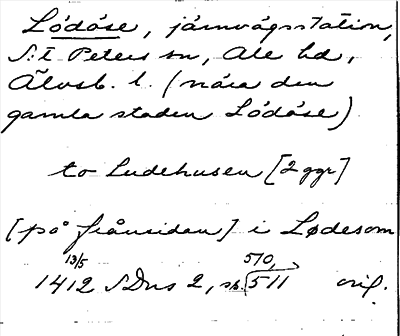 Lödöse, järnvägsstation,
S:t Peters sn, Ale hd,
Älvsb. l. (nära den
gamla staden Lödöse)
to Ludehusen [2 ggr]
[på frånsidan] i Lødesom
13/5 570,
1412 SDns 2, s. 511 orig.